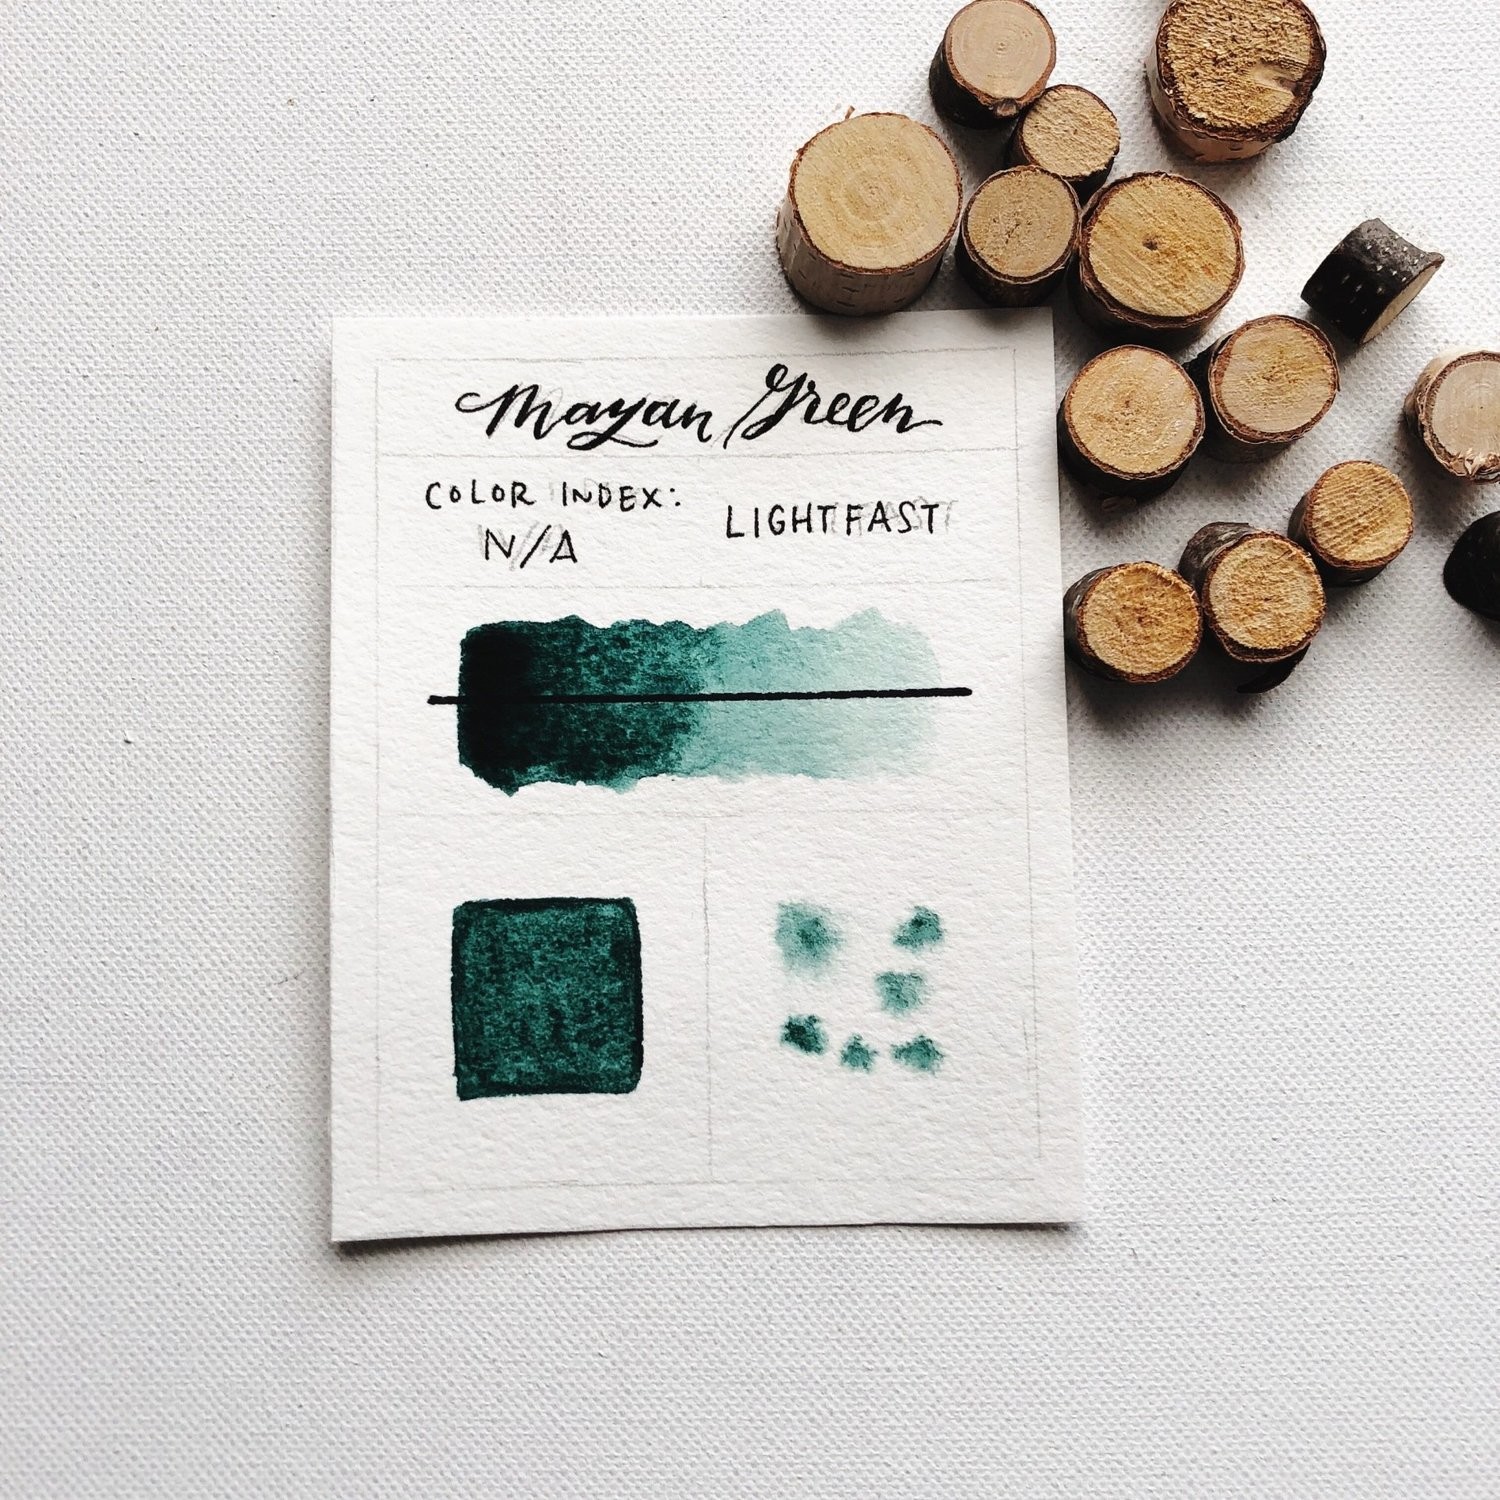 Mayan Green
COLOR INDEX:
N/A
LIGHTFAST